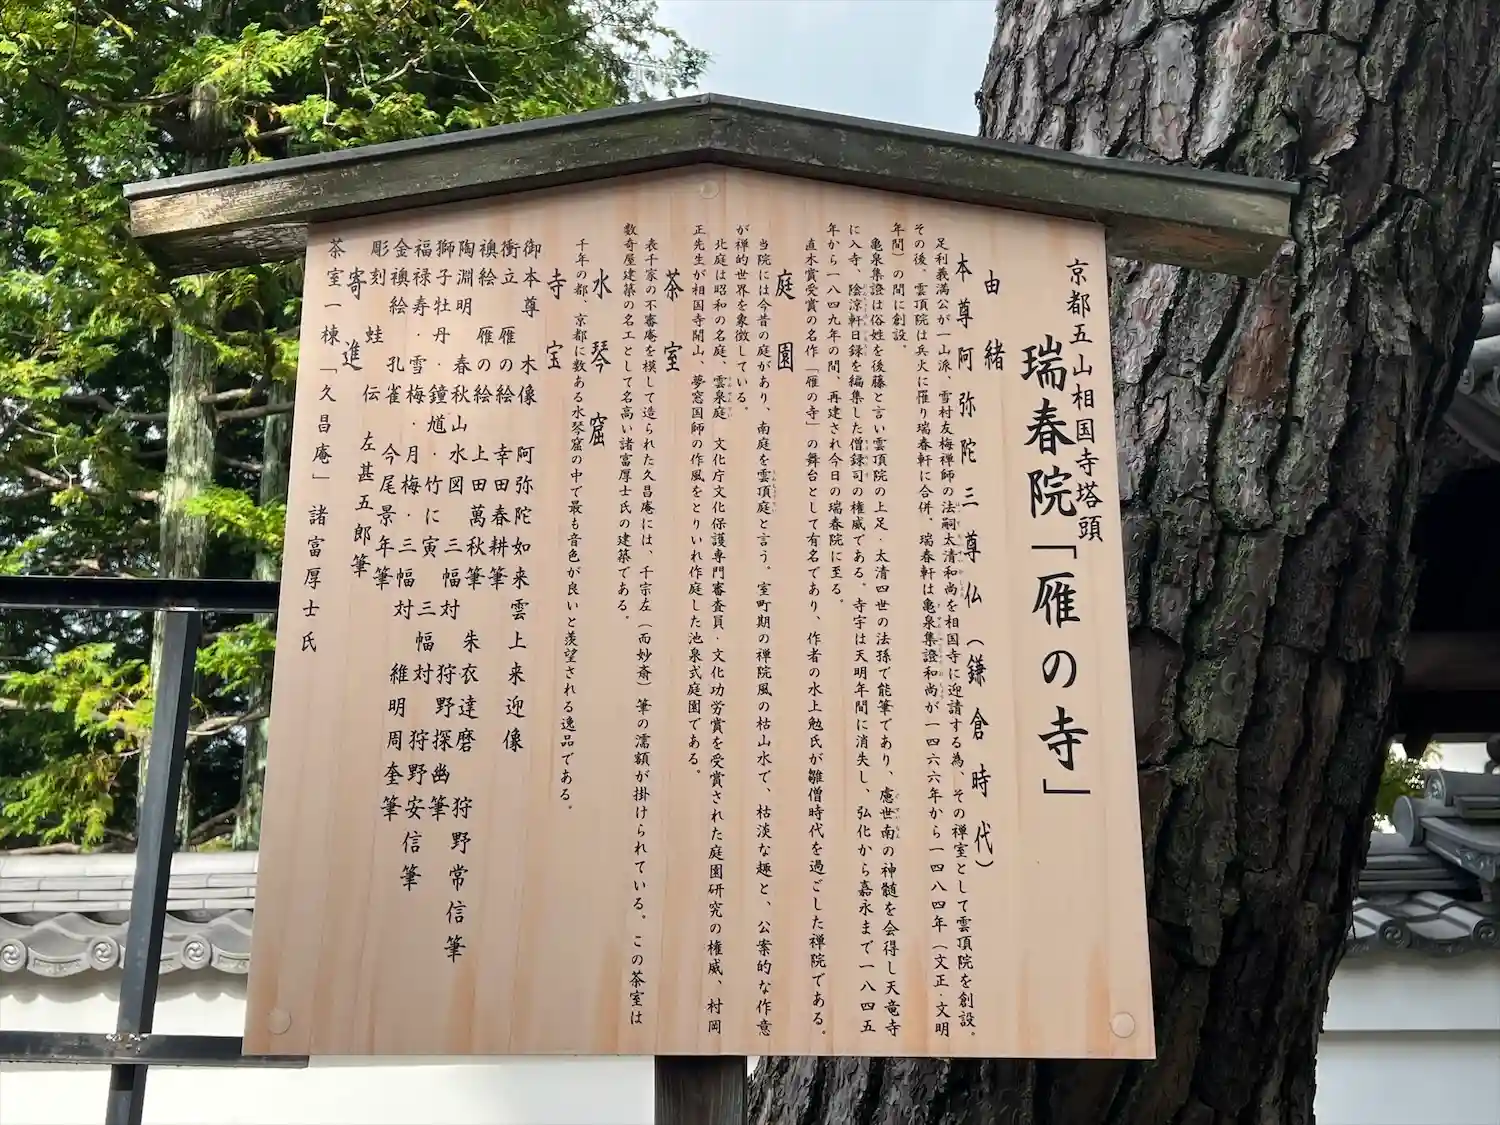 京都五山相国寺塔頭
瑞春院「雁の寺」
由緒
本尊阿弥陀三尊仏（鎌倉時代）
足利義満公が一山派、雪村友梅禅師の法嗣太清和尚を相国寺に迎請する為、その禅室として雲頂院を創設。
その後、雲頂院は兵火に罹り瑞春軒に合併、瑞春軒は亀泉集證和尚が一四六六年から一四八四年（文正・文明
年間）の間に創設。
亀泉集證は俗姓を後藤と言い雲頂院の上足・太清四世の法孫で能筆であり、虞世南の神髄を会得し天竜寺
に入寺、陰涼軒日録を編集した僧録司の権威である。寺宇は天明年間に消失し、弘化から嘉永まで一八四五
年から一八四九年の間、再建され今日の瑞春院に至る。
直木賞受賞の名作「雁の寺」の舞台として有名であり、作者の水上勉氏が雛僧時代を過ごした禅院である。
庭園
当院には今昔の庭があり、南庭を雲頂庭と言う。室町期の禅院風の枯山水で、枯淡な趣と、公案的な作意
が禅的世界を象徴している。
北庭は昭和の名庭、雲泉庭　文化庁文化保護専門審査員・文化功労賞を受賞された庭園研究の権威、村岡
正先生が相国寺開山、夢窓国師の作風をとりいれ作庭した池泉式庭園である。
茶室
表千家の不審庵を模して造られた久昌庵には、千宗左（而妙斎）筆の濡額が掛けられている。この茶室は
数奇屋建築の名工として名高い諸富厚士氏の建築である。
水琴窟
千年の都、京都に数ある水琴窟の中で最も音色が良いと羨望される逸品である。
寺宝
御本尊　木像　阿弥陀如来雲上来迎像
衝立　雁の絵　幸田春耕筆
襖絵　雁の絵　上田萬秋筆
陶淵明・春秋山水図　三幅対　朱衣達磨　狩野常信筆
獅子牡丹・雪・鐘馗・竹に寅　三幅対　狩野探幽筆
福禄寿・雪梅・月梅・三幅対　狩野安信筆
金襖絵　孔雀　今尾景年筆　維明周奎筆
彫刻　蛙　伝　左甚五郎筆
寄進
茶室一棟「久昌庵」諸富厚士氏